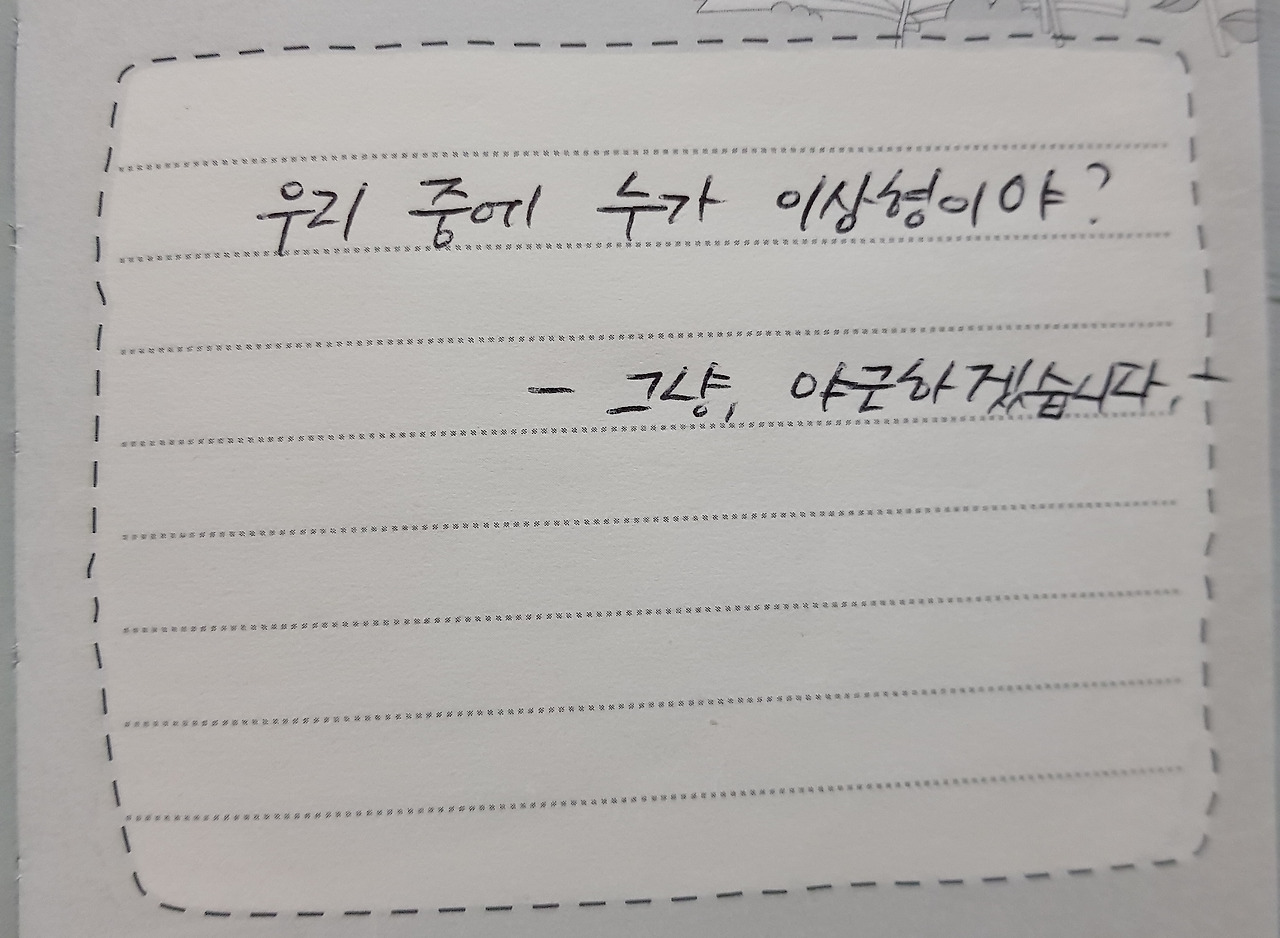 우리 중에 누가 이상형이야?
- 그냥, 야근하겠습니다. -